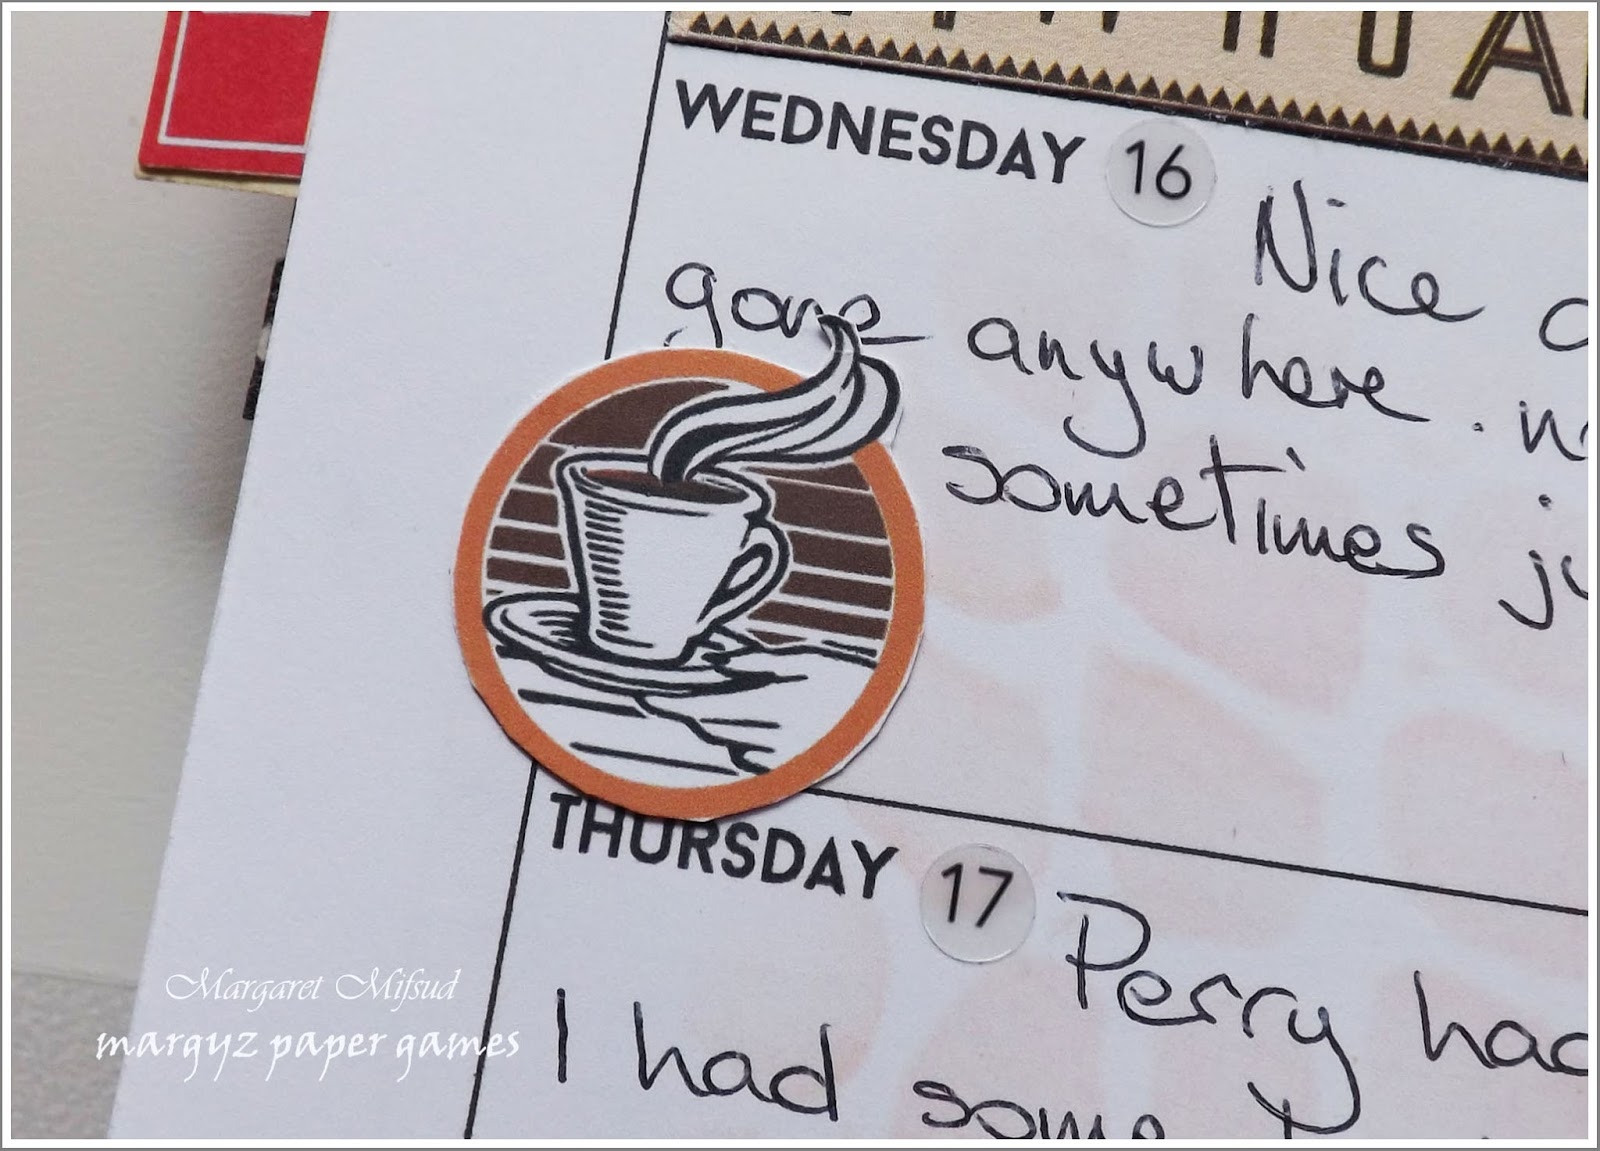 WEDNESDAY 16 Nice
gone anywhere.
sometimes
THURSDAY 17 Perry had
I had some
Margaret Mifsud
margyz paper games